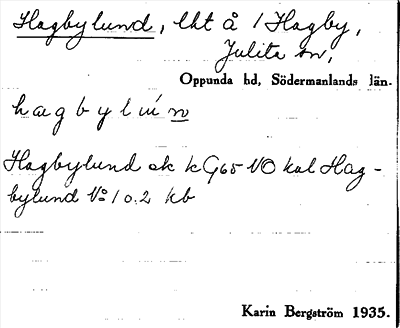 Hagbylund, lht å 1 Hagby,
Julita sn,
Oppunda hd, Södermanlands län.
hagbylún
Hagbylund ek kG65 NO kal Hag-
bylund No 1 o. 2 kb
Karin Bergström 1935.